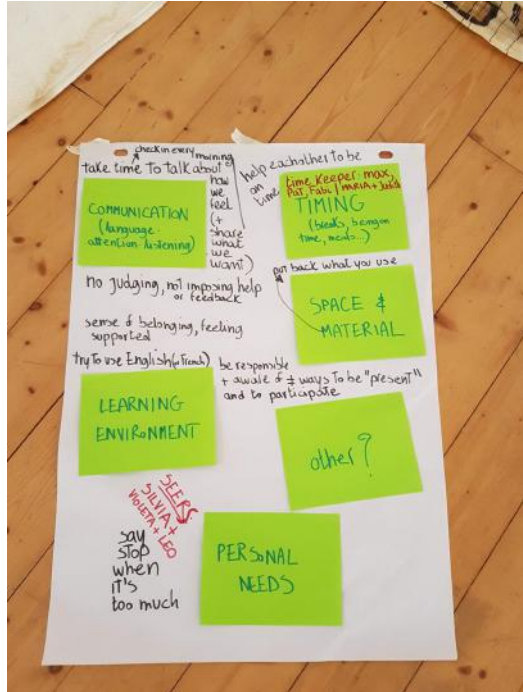 check in every morning
take time to talk about
how
we
feel
(+
share
what
we
want)
COMMUNICATION
(language
attention listening)
help eachother to be
on
time
time keeper: max,
PAT, Fabi / MARIA +
TIMING
(breaks, being on
time, meals...)
no judging, not imposing help
or feedback
put back what you use
SPACE &
MATERIAL
sense of belonging, feeling
supported
try to use English
be responsible
+ aware of ≠ ways to be "present"
and to participate
LEARNING
ENVIRONMENT
other?
SEERS
SILVIA +
VIOLETA + LEO
say
STOP
when
IT'S
too much
PERSONAL
NEEDS